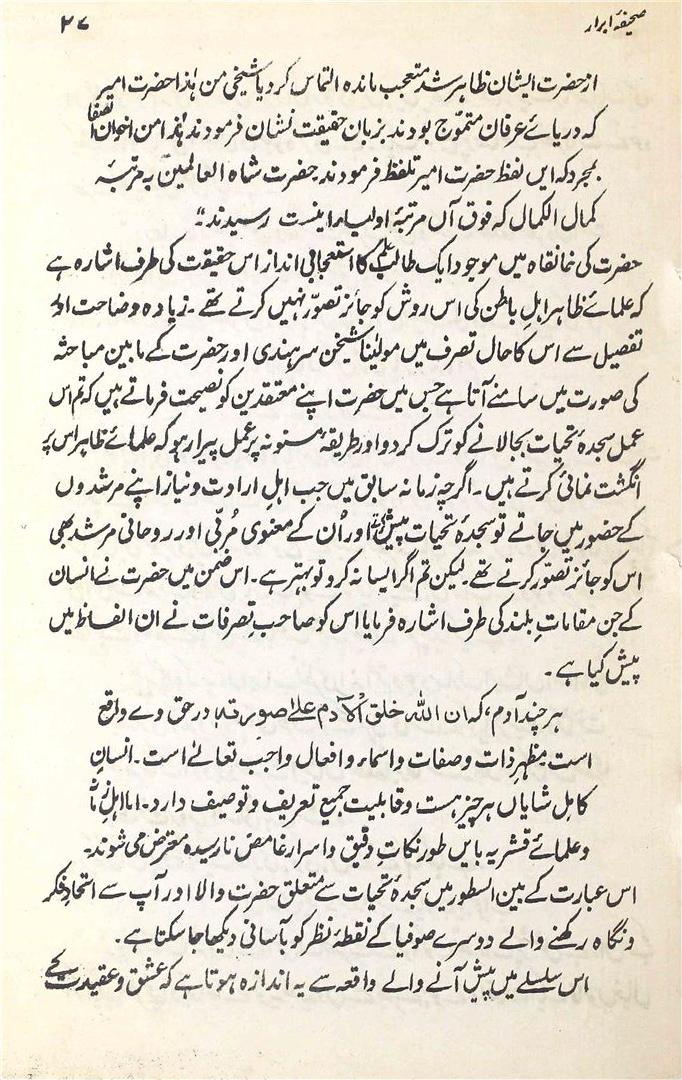 صحیفۂ ابرار
۲۷
از حضرت ایشان ظاہر شد متعجب ماندہ التماس کرد یا شیخی من ہٰذا حضرت امیر
کہ دریائے عرفان متموّج بودند بزبان حقیقت نشان فرمودند ہٰذا من اخوان الصفا
بمجرد کہ ایں لفظ حضرت امیر تلفظ فرمودند حضرت شاہ العالمین بہ مرتبۂ
کمال الکمال کہ فوق آں مرتبۂ اولیاء را نیست رسیدند"
حضرت کی خانقاہ میں موجود ایک طالب علم کا استعجابی انداز اس حقیقت کی طرف اشارہ ہے
کہ علمائے ظاہر اہلِ باطن کی اس روش کو جائز تصوّر نہیں کرتے تھے۔ زیادہ وضاحت اور
تفصیل سے اس کا حال تصرف میں مولینا شیخن سرہندی اور حضرت کے مابین مباحثہ
کی صورت میں سامنے آتا ہے جس میں حضرت اپنے معتقدین کو نصیحت فرماتے ہیں کہ تم اس
عمل سجدۂ تحیات بجا لانے کو ترک کر دو اور طریقۂ مسنونہ پر عمل پیرا رہو کہ علمائے ظاہر اس پر
انگشت نمائی کرتے ہیں۔ اگرچہ زمانہ سابق میں جب اہلِ ارادت و نیاز اپنے مرشدوں
کے حضور میں جاتے تو سجدۂ تحیات پیش کرتے اور اُن کے معنوی مُربّی اور روحانی مرشد بھی
اس کو جائز تصوّر کرتے تھے۔ لیکن تم اگر ایسا نہ کرو تو بہتر ہے۔ اس ضمن میں حضرت نے انسان
کے جن مقاماتِ بلند کی طرف اشارہ فرمایا اس کو صاحبِ تصرفات نے ان الفاظ میں
پیش کیا ہے۔
ہر چند آدم، کہ ان اللہ خلق اٰلآدم علیٰ صورتہٖ در حق وے واقع
است مظہرِ ذات و صفات و اسماء و افعال واجب تعالےٰ است۔ انسانِ
کامل شایاں ہر چیز ہست و قابلیت جمیع تعریف و توصیف دارد۔ اما اہلِ
و علمائے قشریہ بایں طور نکاتِ دقیق و اسرار غامض نارسیدہ معترض می شوند۔
اس عبارت کے بین السطور میں سجدۂ تحیات سے متعلق حضرت والا اور آپ سے اتحادِ فکر
و نگاہ رکھنے والے دوسرے صوفیا کے نقطۂ نظر کو بآسانی دیکھا جا سکتا ہے۔
اس سلسلے میں پیش آنے والے واقعہ سے یہ اندازہ ہوتا ہے کہ عشق و عقیدت کے